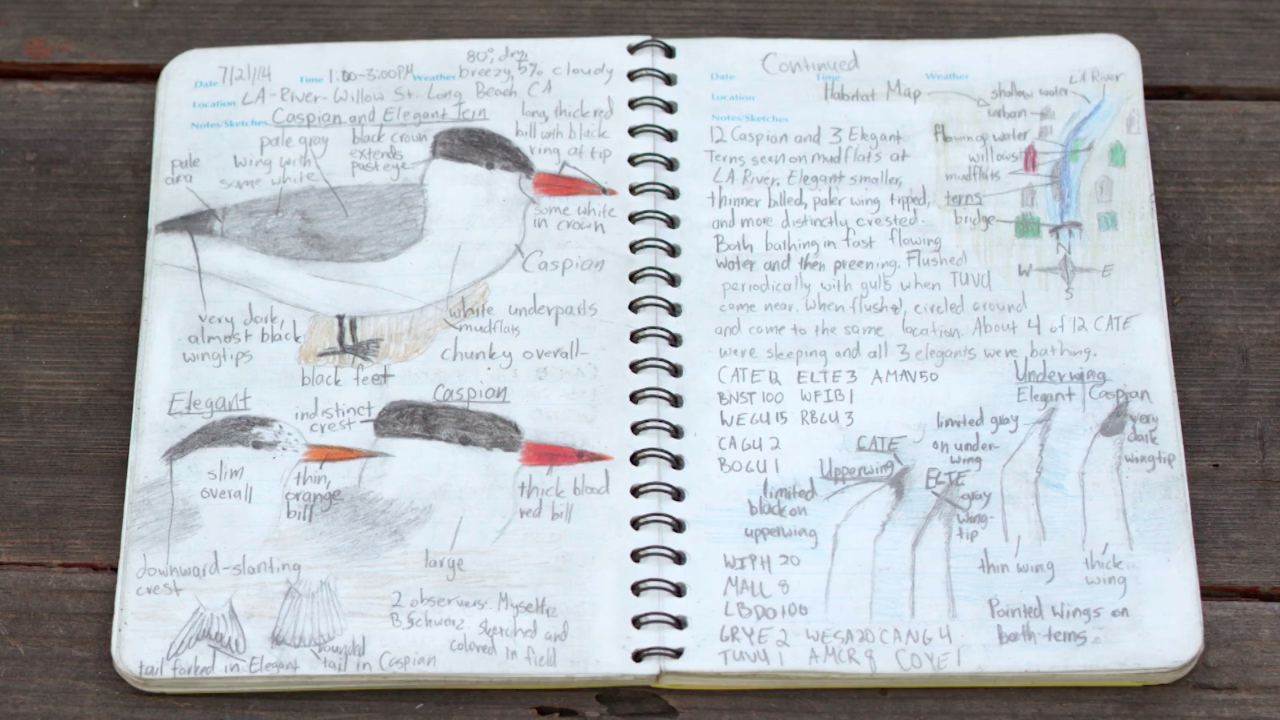 80°, dry,
Date 7/21/14 Time 1:00-3:00PM Weather breezy, 5% cloudy
Location LA-River-Willow St. Long Beach CA
Notes/Sketches Caspian and Elegant Tern
pale
area
pale gray
wing with
some white
black crown
extends
past eye
long, thick red
bill with black
ring at tip
some white
in crown
Caspian
very dark,
almost black
wingtips
white underparts
mudflats
chunky overall-
black feet
Elegant
indistinct
crest
Caspian
slim
overall
thin,
orange
bill
thick blood
red bill
downward-slanting
crest
large
2 observers: Myself
B. Schwarz sketched and
colored in field
tail forked in Elegant
rounded
tail in Caspian
Continued
Date Time Weather
Location
Notes/Sketches
Habitat Map
LA River
shallow water
urban
flowing water
willows
mudflats
terns
bridge
W E
S
12 Caspian and 3 Elegant
Terns seen on mudflats at
LA River. Elegant smaller,
thinner billed, paler wing tipped,
and more distinctly crested.
Both bathing in fast flowing
water and then preening. Flushed
periodically with gulls when TUVU
came near. When flushed, circled around
and came to the same location. About 4 of 12 CATE
were sleeping and all 3 elegants were bathing.
CATE 12 ELTE 3 AMAV 50
BNST 100 WFIB 1
WEGU 15 RBGU 3
CAGU 2
BOGU 1
Underwing
Elegant Caspian
limited gray
on under-
wing
very
dark
wingtip
CATE
Upperwing
ELTE
limited
black on
upperwing
gray
wing-
tip
thin wing
thick
wing
WIPH 20
MALL 8
LBDO 100
GRYE 2 WESA 20 CANG 4
TUVU 1 AMCR 8 COYE 1
Pointed wings on
both terns.